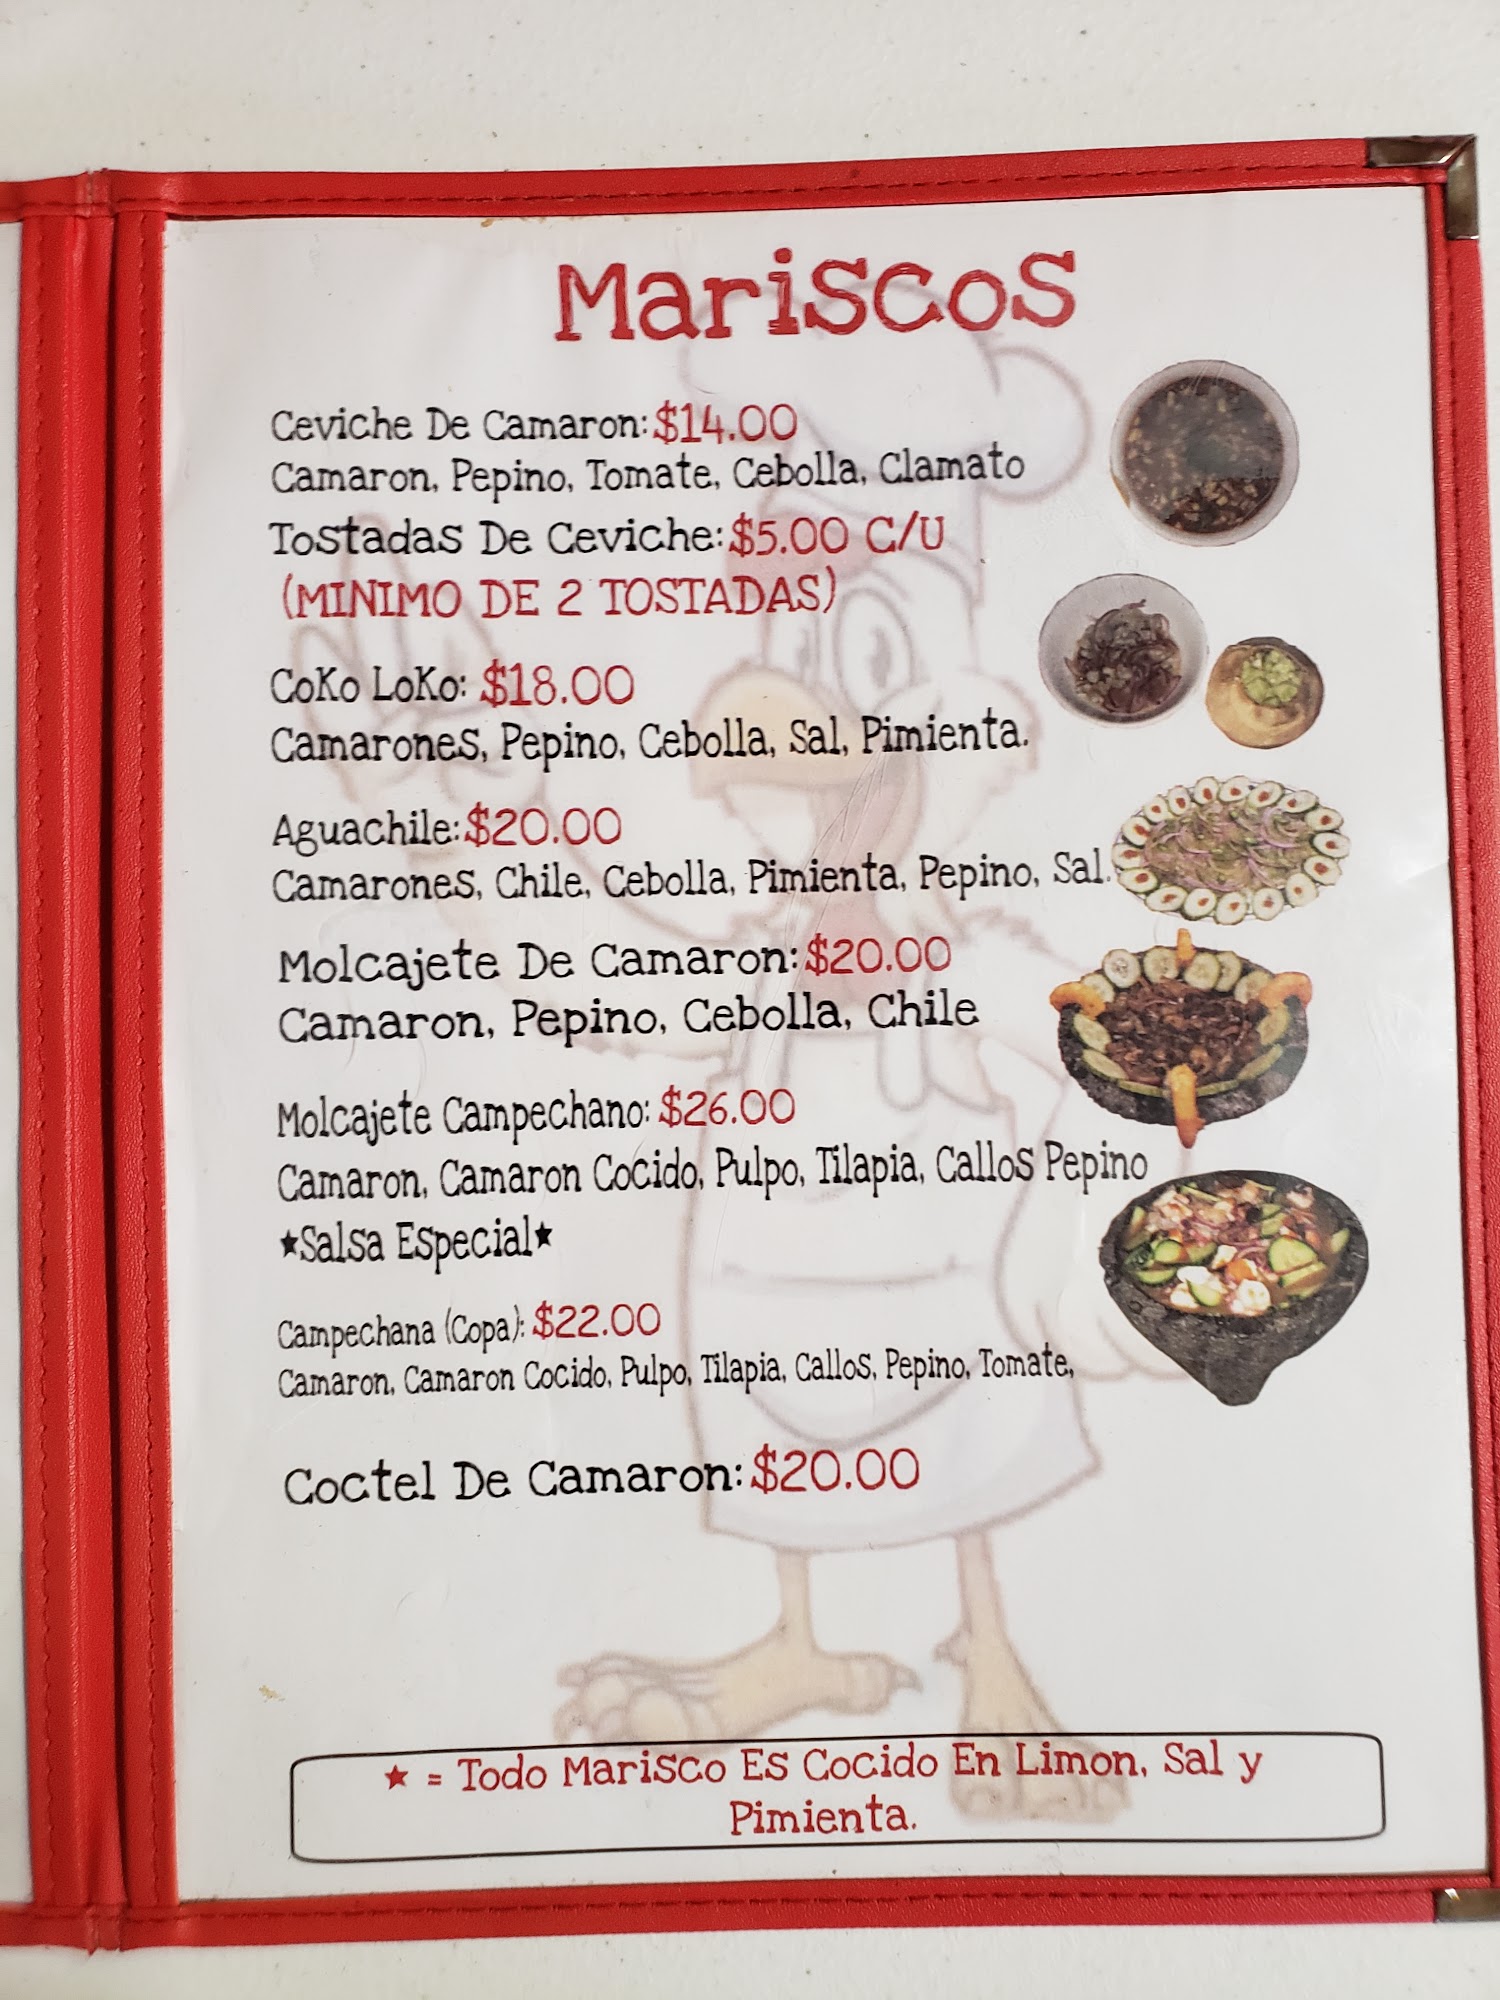 Mariscos
Ceviche De Camaron: $14.00
Camaron, Pepino, Tomate, Cebolla, Clamato
Tostadas De Ceviche: $5.00 C/U
(MINIMO DE 2 TOSTADAS)
CoKo LoKo: $18.00
Camarones, Pepino, Cebolla, Sal, Pimienta.
Aguachile: $20.00
Camarones, Chile, Cebolla, Pimienta, Pepino, Sal.
Molcajete De Camaron: $20.00
Camaron, Pepino, Cebolla, Chile
Molcajete Campechano: $26.00
Camaron, Camaron Cocido, Pulpo, Tilapia, Callos Pepino
★Salsa Especial★
Campechana (Copa): $22.00
Camaron, Camaron Cocido, Pulpo, Tilapia, Callos, Pepino, Tomate,
Coctel De Camaron: $20.00
★ = Todo Marisco Es Cocido En Limon, Sal y
Pimienta.